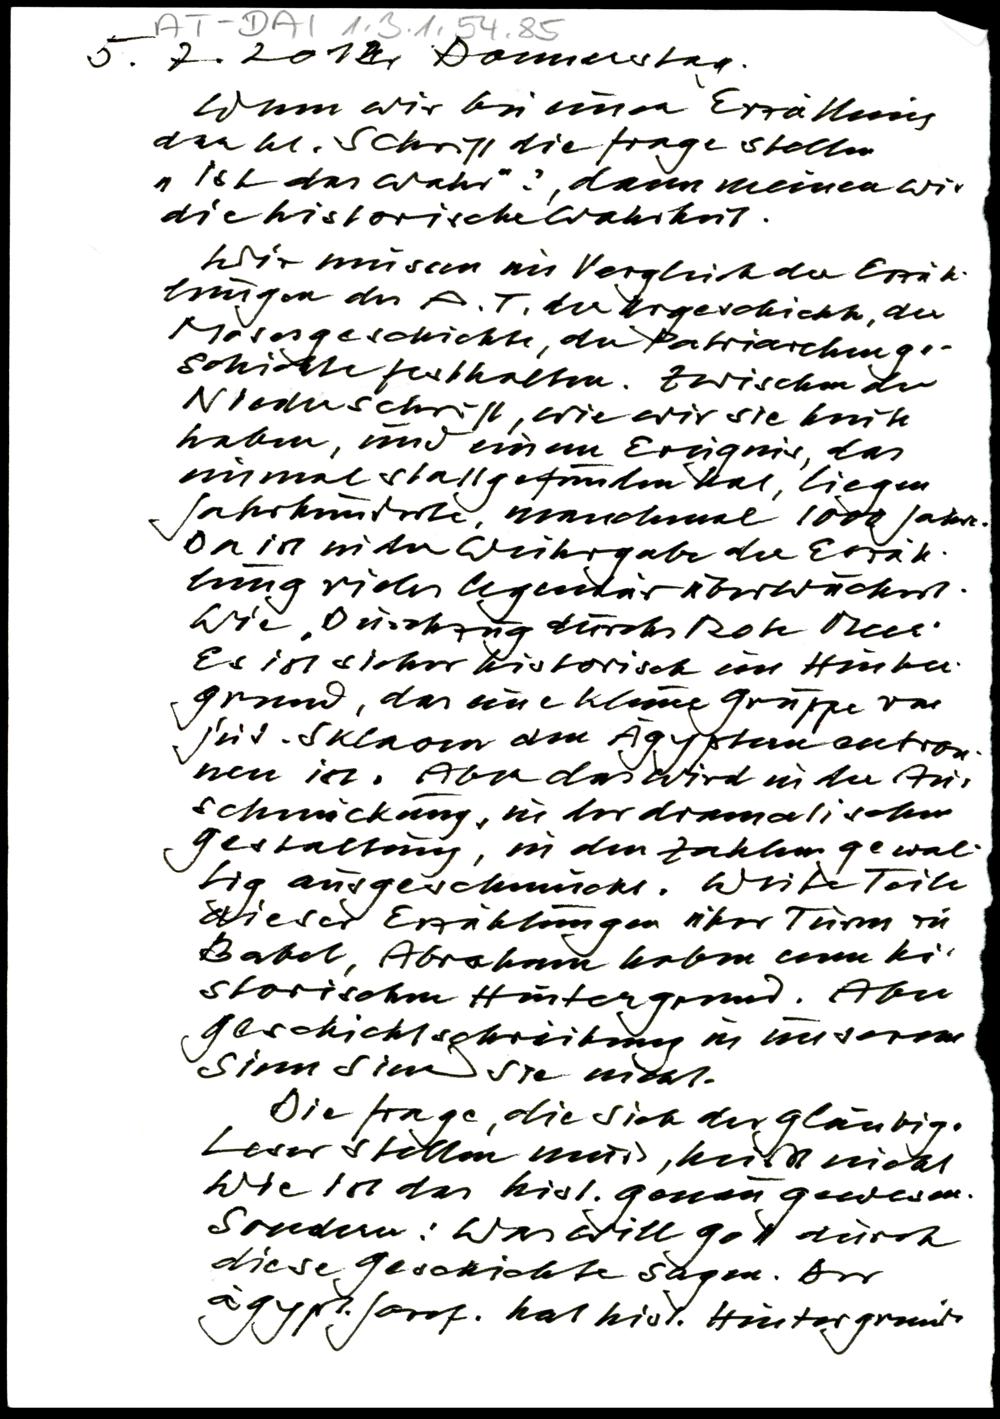 AT-DAI 1.3.1.54.85
5. 7. 2012, Donnerstag.
Wenn wir bei einer Erzählung
der hl. Schrift die Frage stellen
„Ist das wahr"?, dann meinen wir
die historische Wahrheit.
Wir müssen im Vergleich der Erzäh-
lungen des A.T. der Urgeschichte, der
Mosesgeschichte, der Patriarchenge-
schichte festhalten. Zwischen der
Niederschrift, wie wir sie heute
haben, und einem Ereignis, das
einmal stattgefunden hat, liegen
Jahrhunderte, manchmal 1000 Jahre.
Da ist in der Weitergabe der Erzäh-
lung vieles legendär überwuchert.
Wie „Durchzug durchs Rote Meer.
Es ist sicher historisch im Hinter-
grund, das eine kleine Gruppe von
jüd. Sklaven den Ägyptern entron-
nen ist. Aber das wird in der Aus-
schmückung, in der dramatischen
Gestaltung, in den Zahlen gewal-
tig ausgeschmückt. Weite Teile
dieser Erzählungen über Turm zu
Babel, Abraham haben einen hi-
storischen Hintergrund. Aber
Geschichtsschreibung in unserem
Sinn sind sie nicht.
Die Frage, die sich der gläubige
Leser stellen muss, heisst nicht
Wie ist das hist. genau gewesen.
Sondern: Was will Gott durch
diese Geschichte sagen. Der
ägypt. Josef. hat hist. Hintergrund